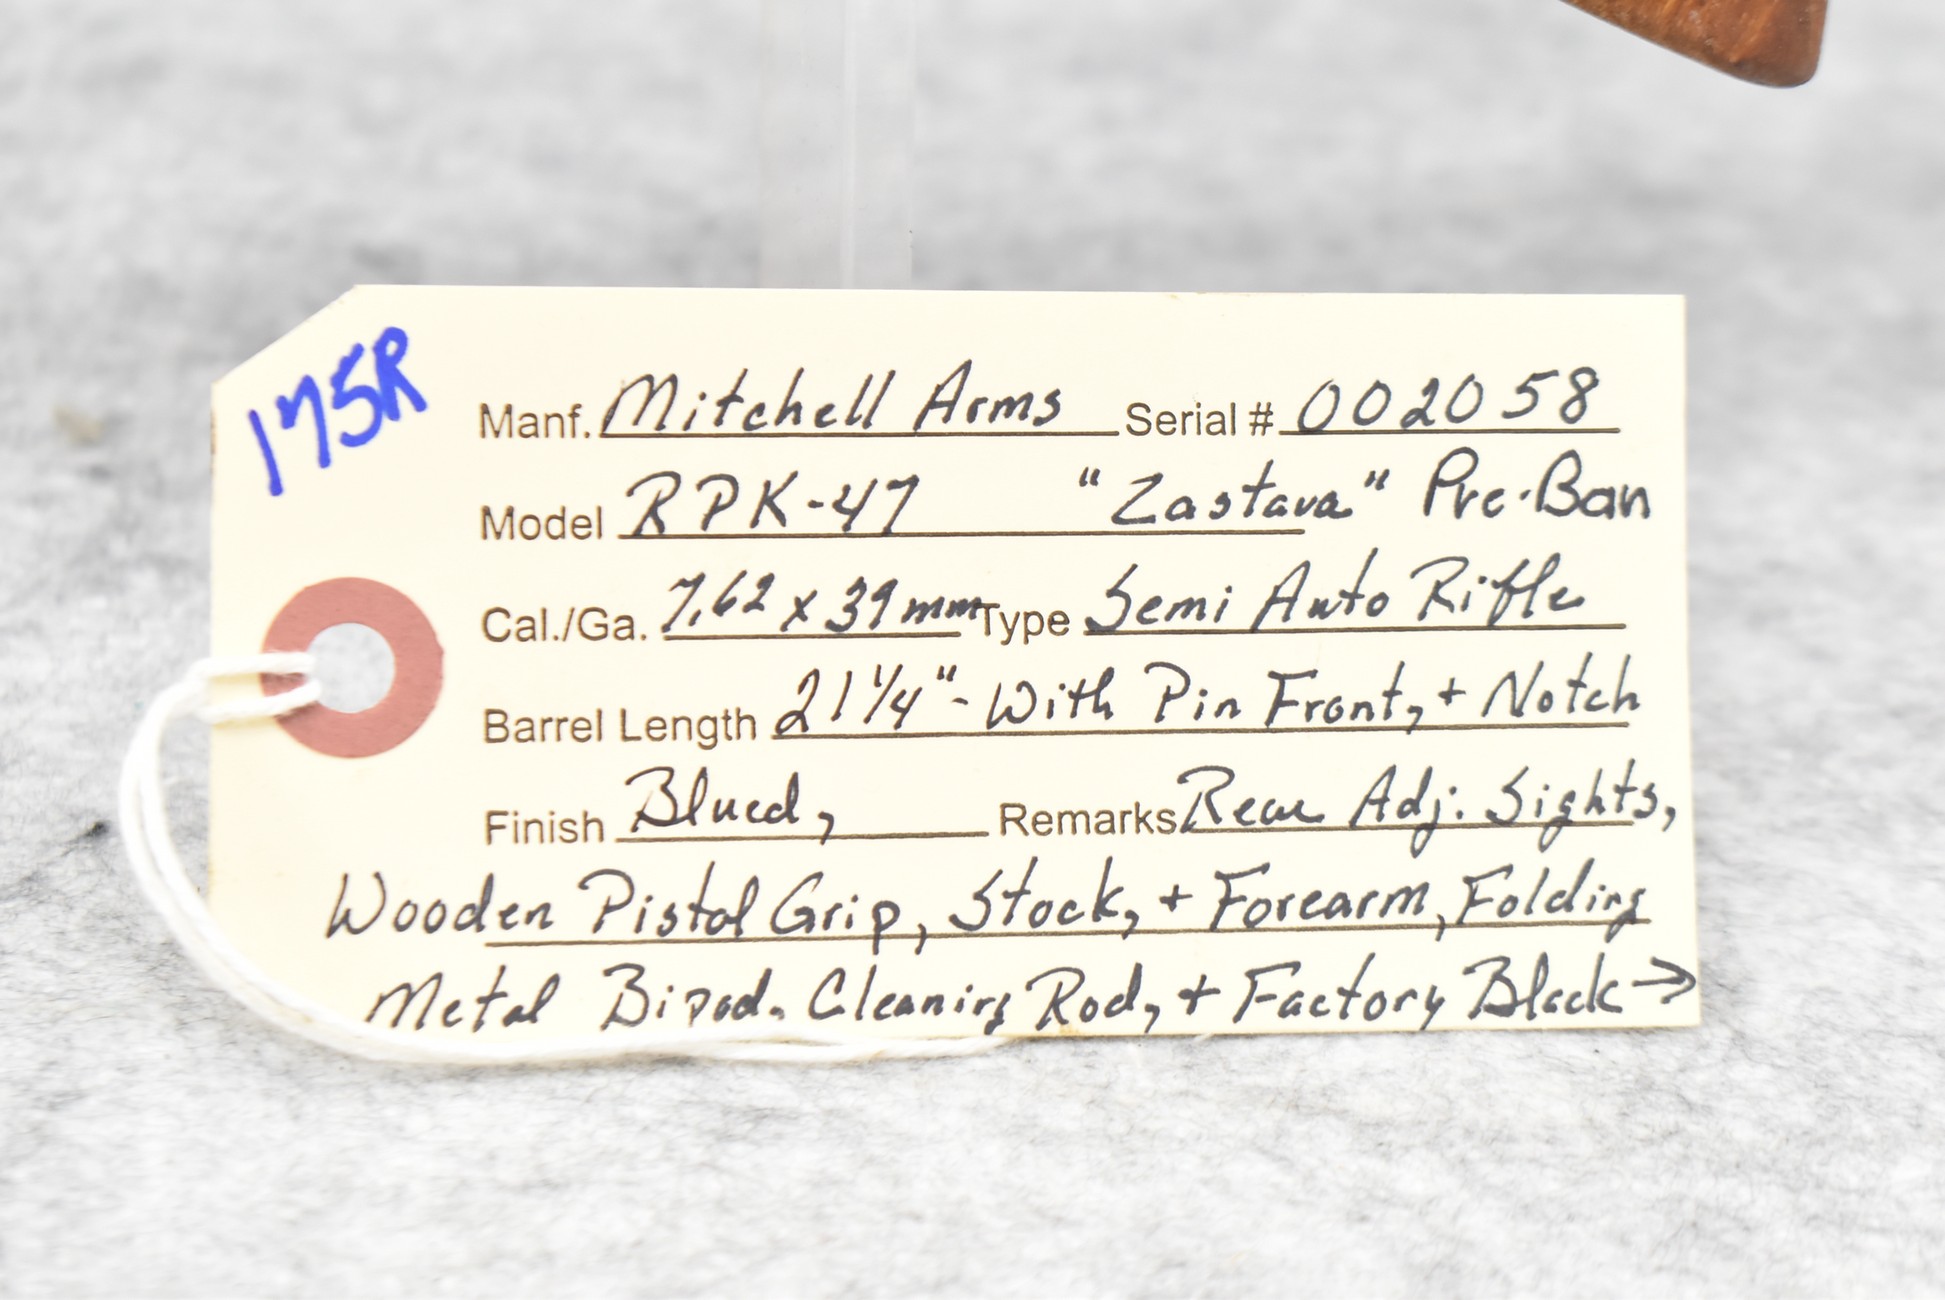 175R
Manf. Mitchell Arms Serial # 002058
Model RPK-47 "Zastava" Pre-Ban
Cal./Ga. 7.62 x 39mm Type Semi Auto Rifle
Barrel Length 21 1/4" - With Pin Front, + Notch
Finish Blued, Remarks Rear Adj. Sights,
Wooden Pistol Grip, Stock, + Forearm, Folding
Metal Bipod. Cleaning Rod, + Factory Black →